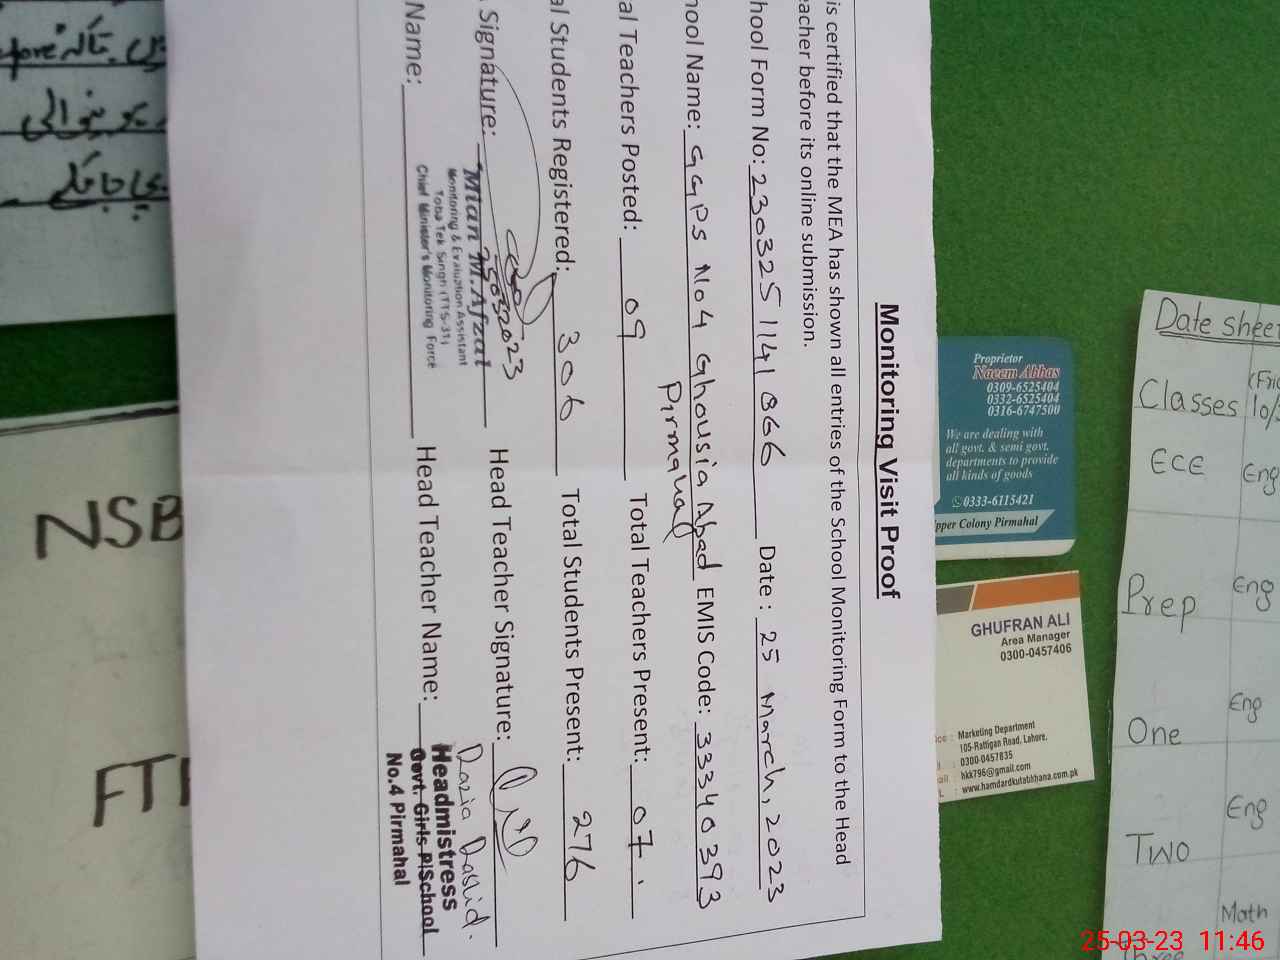 Monitoring Visit Proof
is certified that the MEA has shown all entries of the School Monitoring Form to the Head
eacher before its online submission.
hool Form No: 230325 1141 066 Date : 25 March, 2023
hool Name: GGPS No 4 Ghousia Abad EMIS Code: 33340393
Pirmahal
al Teachers Posted: 09 Total Teachers Present: 07
al Students Registered: 306 Total Students Present: 276
Signature: Head Teacher Signature:
Mian M.Afzal
25032023
Monitoring & Evaluation Assistant
Toba Tek Singh (TTS-31)
Chief Minister's Monitoring Force
Name: Head Teacher Name: Razia Rashid.
Headmistress
Govt. Girls P/School
No.4 Pirmahal
Proprietor
Naeem Abbas
0309-6525404
0332-6525404
0316-6747500
We are dealing with
all govt. & semi govt.
departments to provide
all kinds of goods
0333-6115421
pper Colony Pirmahal
GHUFRAN ALI
Area Manager
0300-0457406
ice : Marketing Department
105-Rattigan Road, Lahore.
: 0300-0457835
ail : hkk796@gmail.com
L : www.hamdardkutabkhana.com.pk
Date sheet
Classes
ECE Eng
Prep Eng
One Eng
Two Eng
Three Math
NSB
FTF
25-03-23 11:46